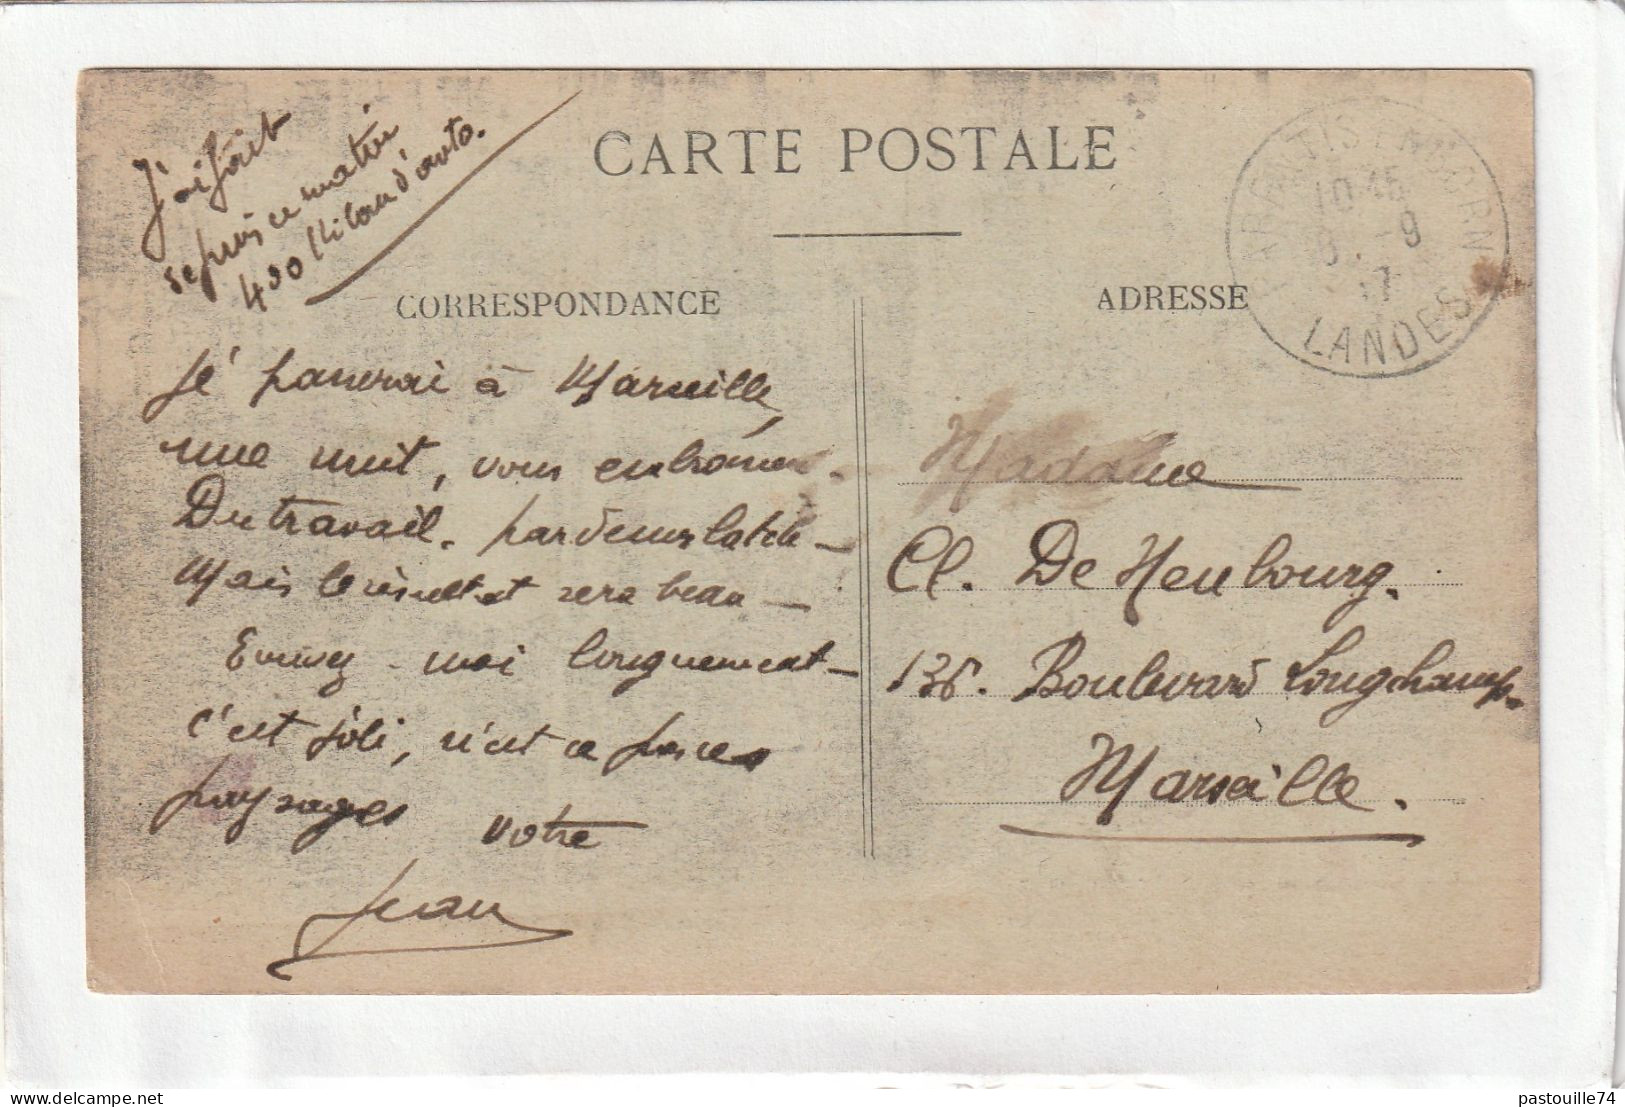 J'ai fait
depuis ce matin
400 Kilom d'auto.
CARTE POSTALE
CORRESPONDANCE
ADRESSE
LANDES
Je passerai à Marseille,
une nuit, vous embrasser.
Du travail. par dessus la tête —
Mais le résultat sera beau —
Ecrivez-moi longuement —
C'est joli, n'est ce pas ces
paysages
Votre
Jean
Madame
Cl. De Heubourg.
136. Boulevard Longchamp.
Marseille.
pastouille74